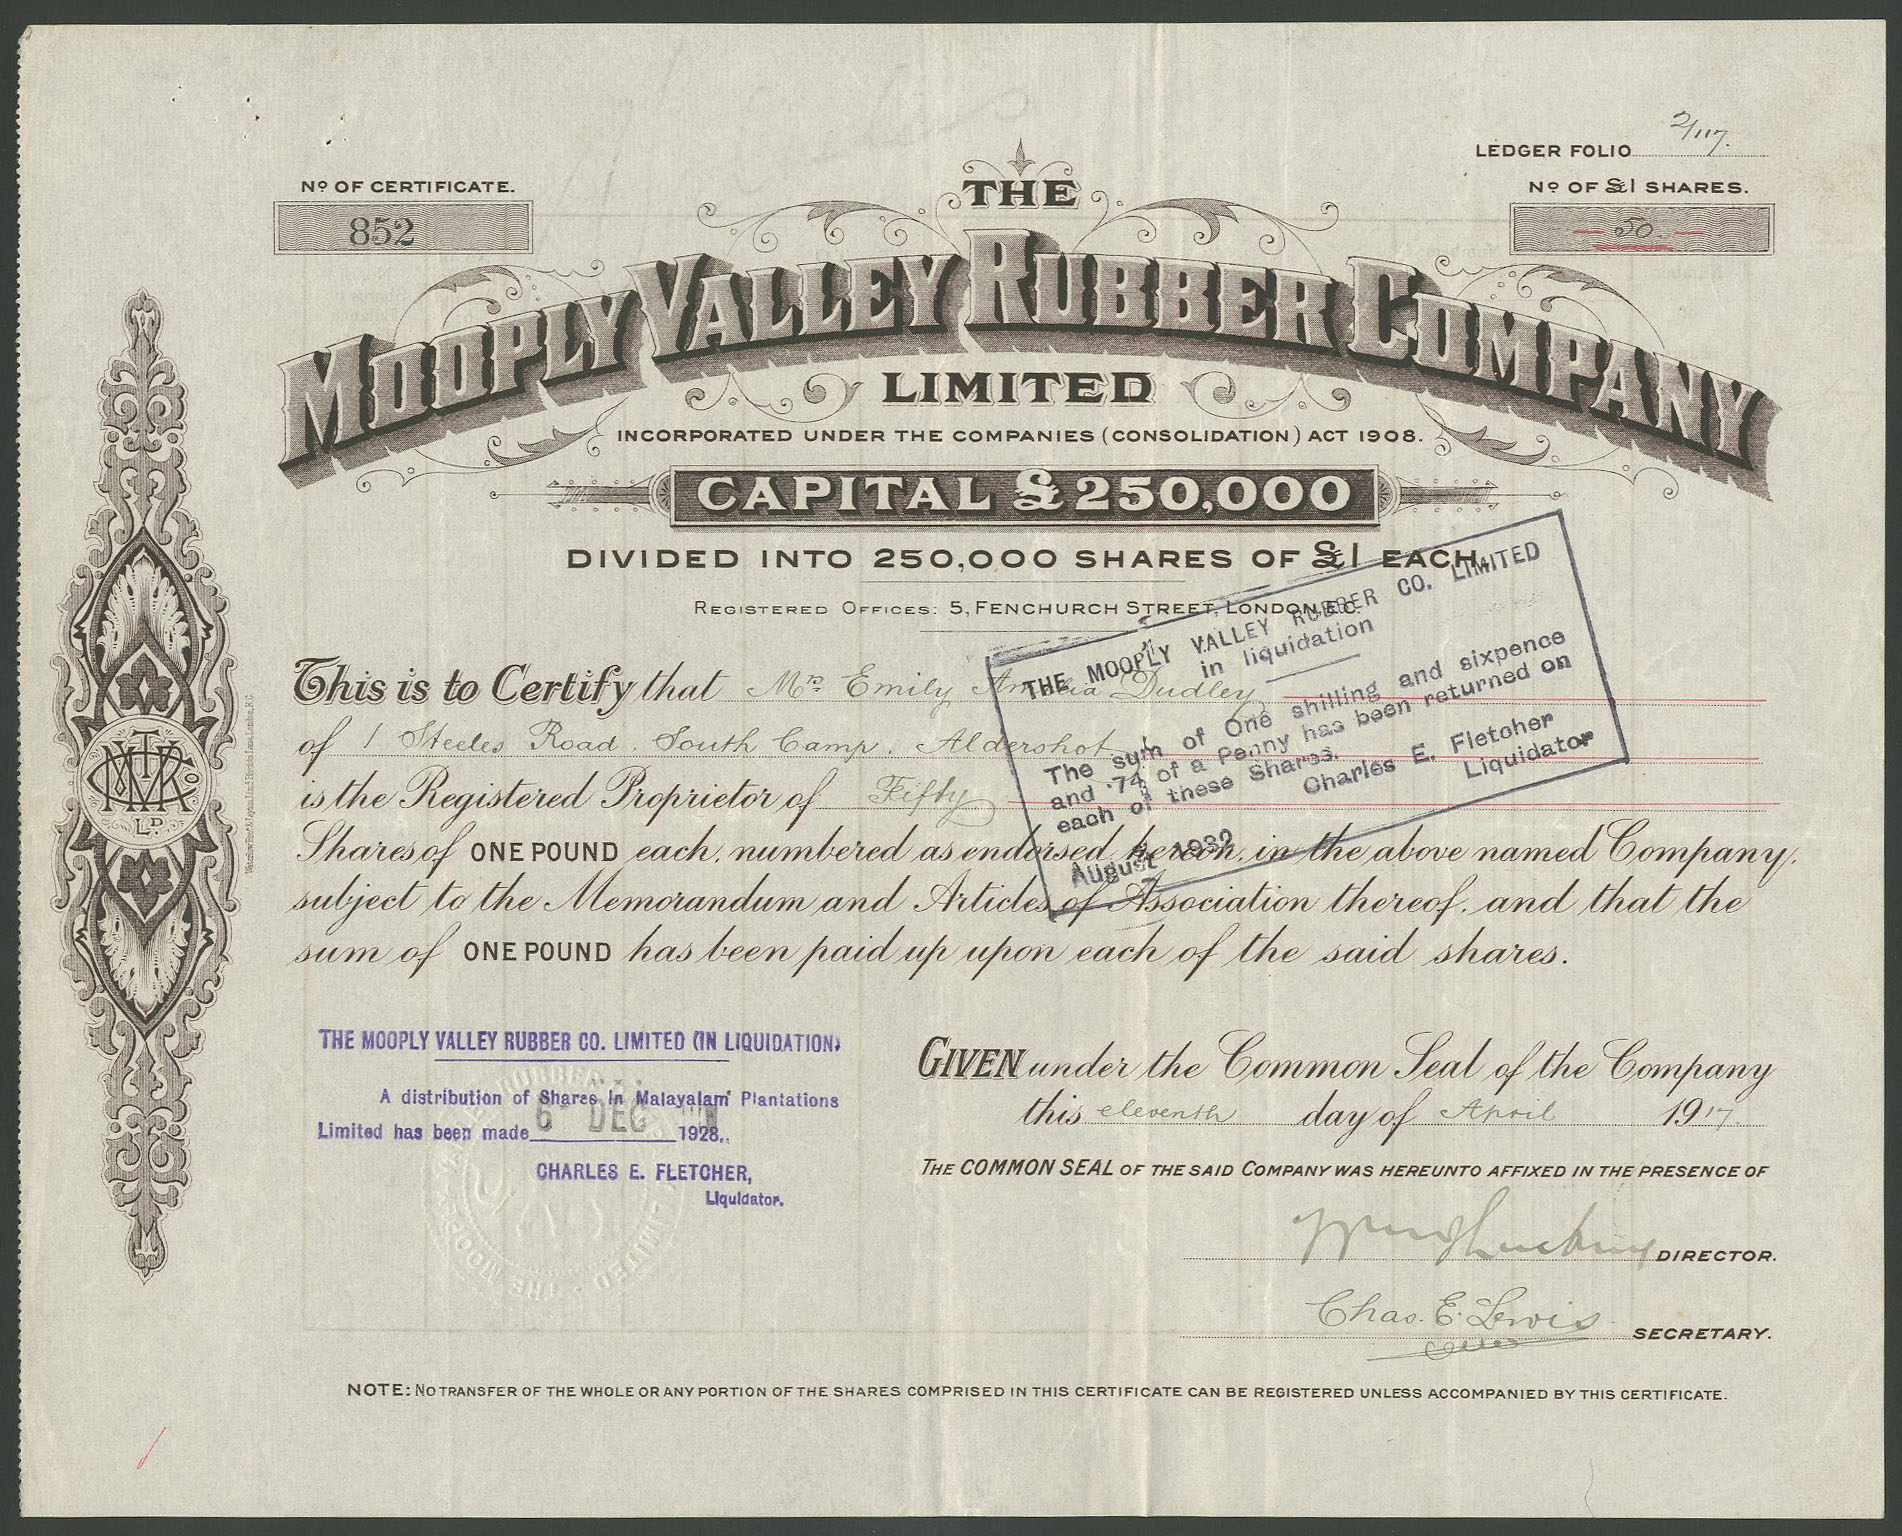 LEDGER FOLIO 2/117.
Nº OF CERTIFICATE.
852
Nº OF £1 SHARES.
50
THE
MOOPLY VALLEY RUBBER COMPANY
LIMITED
INCORPORATED UNDER THE COMPANIES (CONSOLIDATION) ACT 1908.
CAPITAL £250,000
DIVIDED INTO 250,000 SHARES OF £1 EACH.
REGISTERED OFFICES: 5, FENCHURCH STREET, LONDON E.C.
This is to Certify that Mrs Emily Amelia Dudley
of 1 Steeles Road. South Camp. Aldershot
is the Registered Proprietor of Fifty
Shares of ONE POUND each, numbered as endorsed hereon, in the above named Company,
subject to the Memorandum and Articles of Association thereof, and that the
sum of ONE POUND has been paid up upon each of the said shares.
THE MOOPLY VALLEY RUBBER CO. LIMITED
in liquidation
The sum of One shilling and sixpence
and .74 of a Penny has been returned on
each of these Shares.
Charles E. Fletcher
Liquidator
August 1932
MVRCo
LD.
THE MOOPLY VALLEY RUBBER CO. LIMITED (IN LIQUIDATION)
A distribution of Shares in Malayalam Plantations
Limited has been made 6 DEC 1928.
CHARLES E. FLETCHER,
Liquidator.
GIVEN under the Common Seal of the Company
this eleventh day of April 1917.
THE COMMON SEAL OF THE SAID COMPANY WAS HEREUNTO AFFIXED IN THE PRESENCE OF
DIRECTOR.
Chas. E. Lewis
SECRETARY.
NOTE: NO TRANSFER OF THE WHOLE OR ANY PORTION OF THE SHARES COMPRISED IN THIS CERTIFICATE CAN BE REGISTERED UNLESS ACCOMPANIED BY THIS CERTIFICATE.